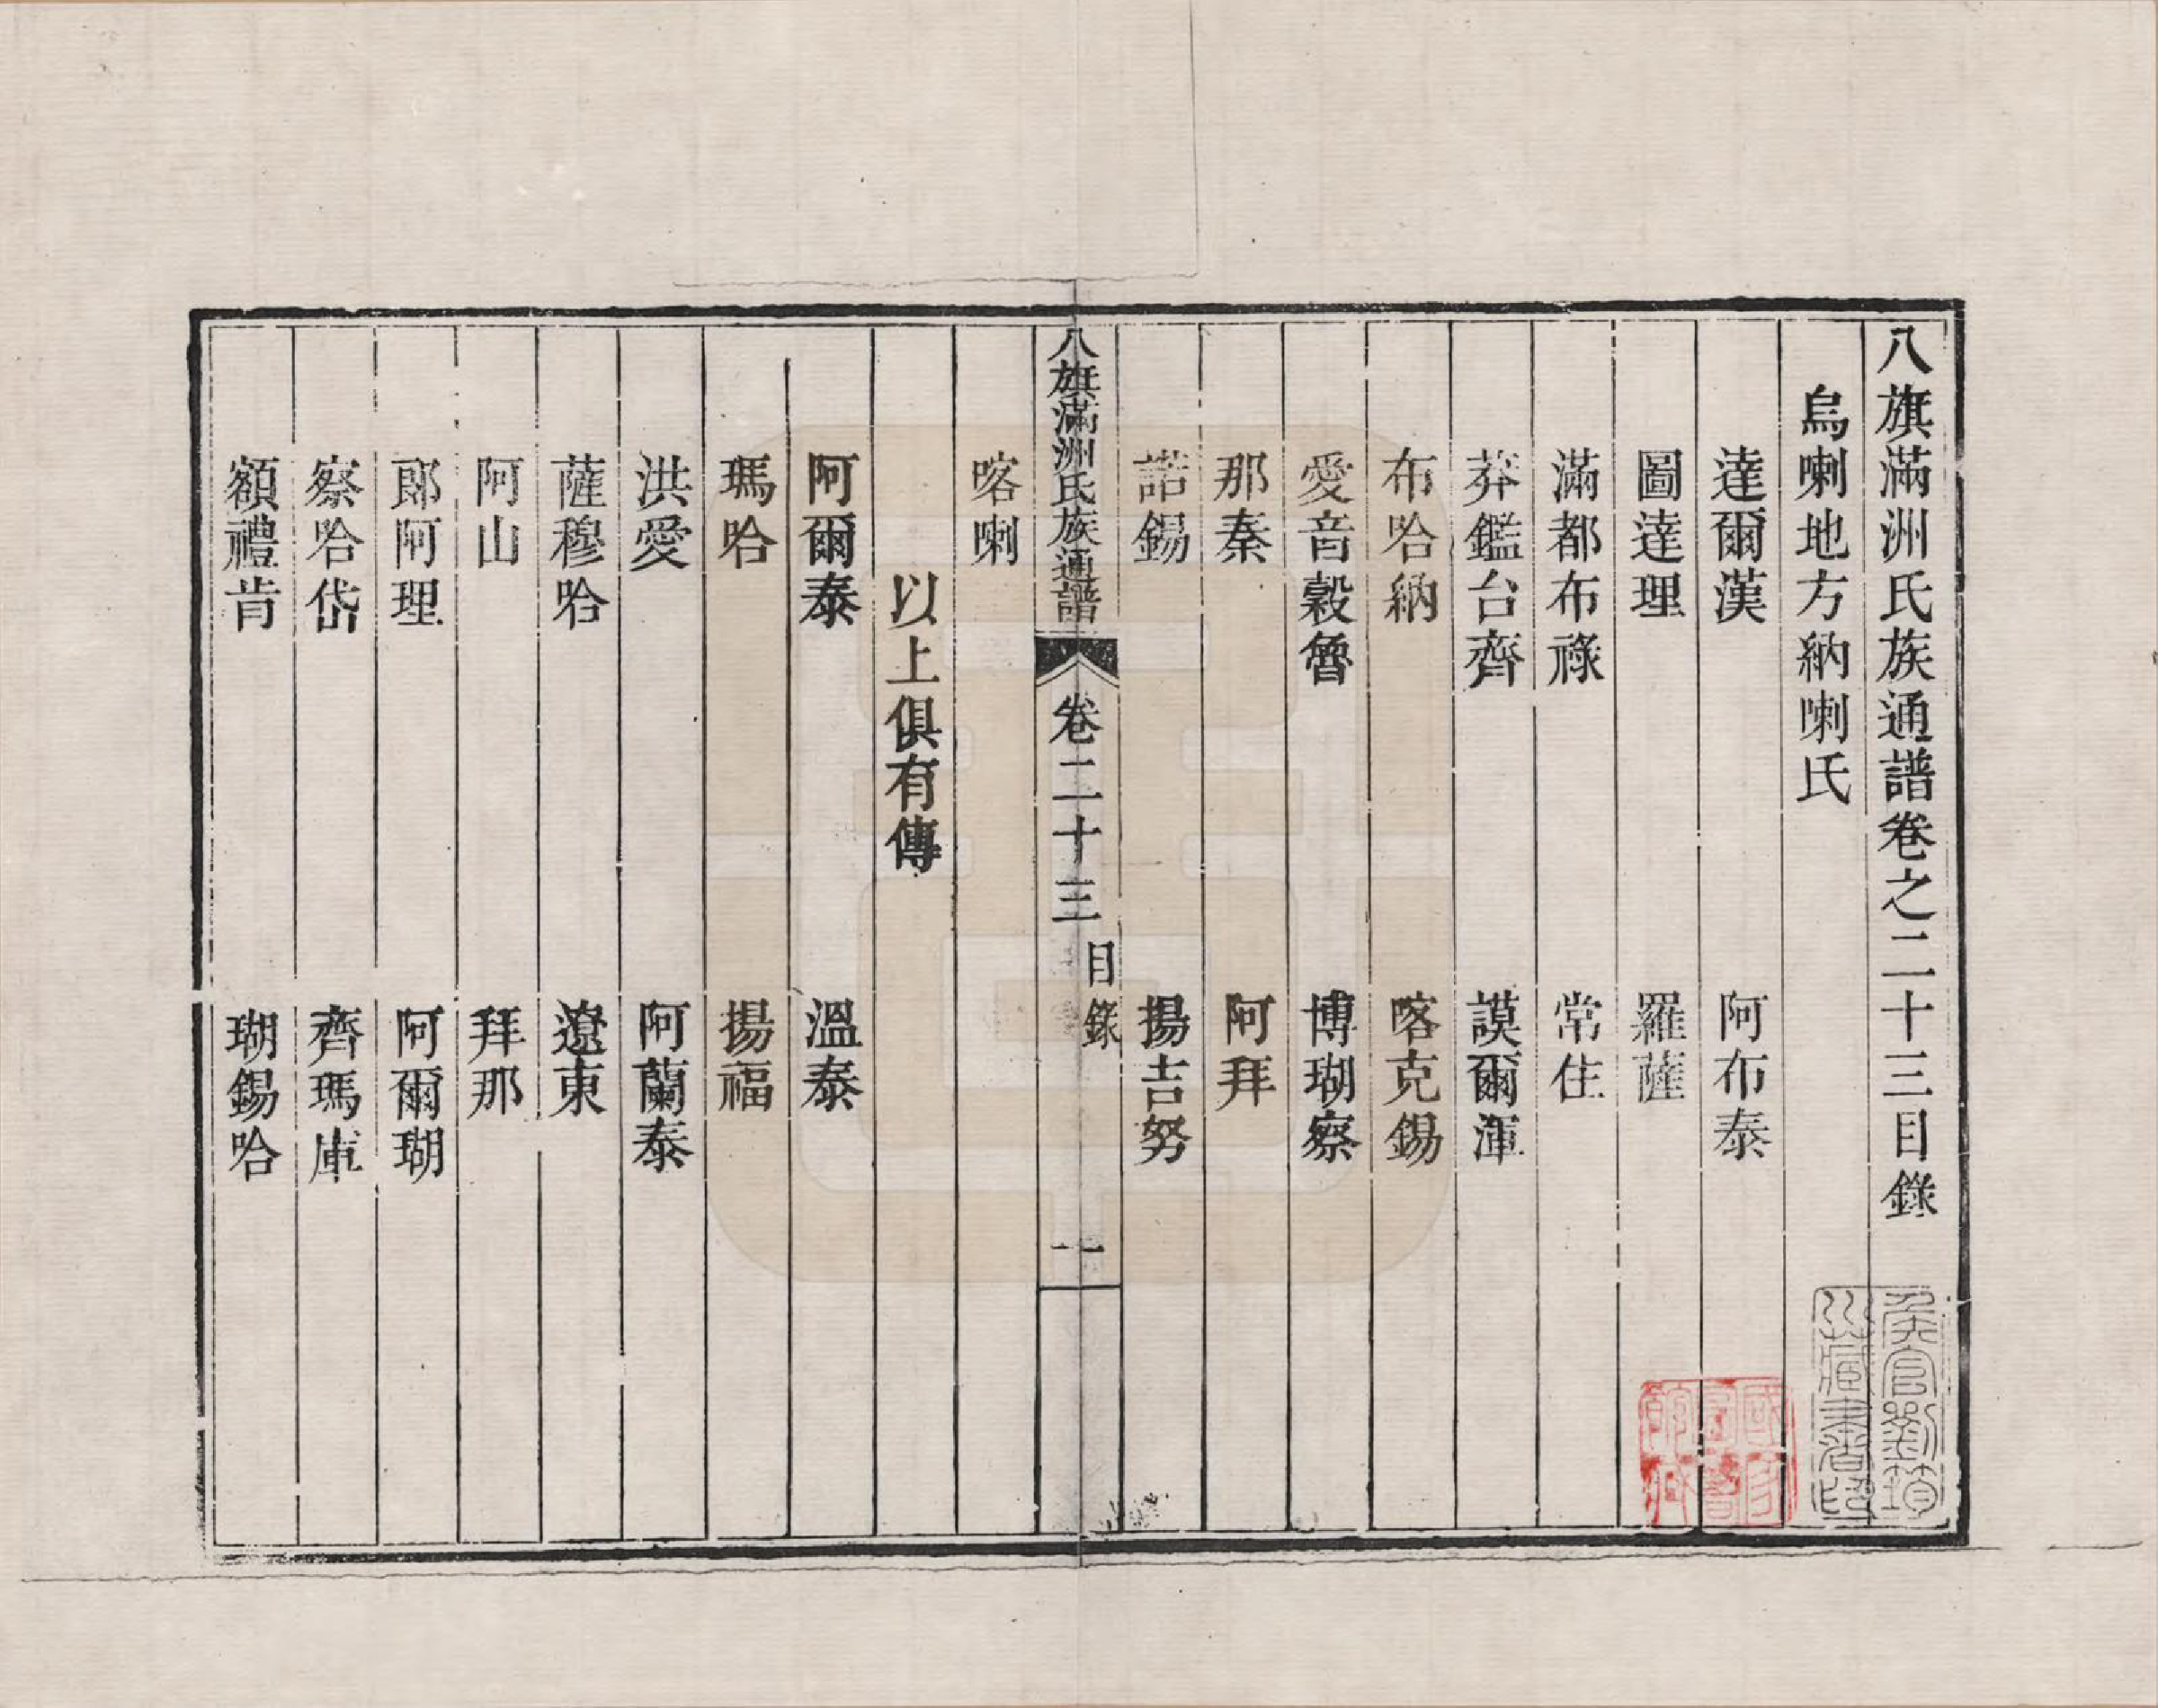 八旗滿洲氏族通譜卷之二十三目錄
烏喇地方納喇氏
達爾漢 阿布泰
圖達理 羅薩
滿都布祿 常住
莽鑑台齊 謨爾渾
布哈納 喀克錫
愛音穀魯 博瑚察
那秦 阿拜
諾錫 揚吉努
八旗滿洲氏族通譜 卷二十三 目錄 一
喀喇
以上俱有傳
阿爾泰 溫泰
瑪哈 揚福
洪愛 阿蘭泰
薩穆哈 遼東
阿山 拜那
郎阿理 阿爾瑚
察哈岱 齊瑪庫
額禮肯 瑚錫哈